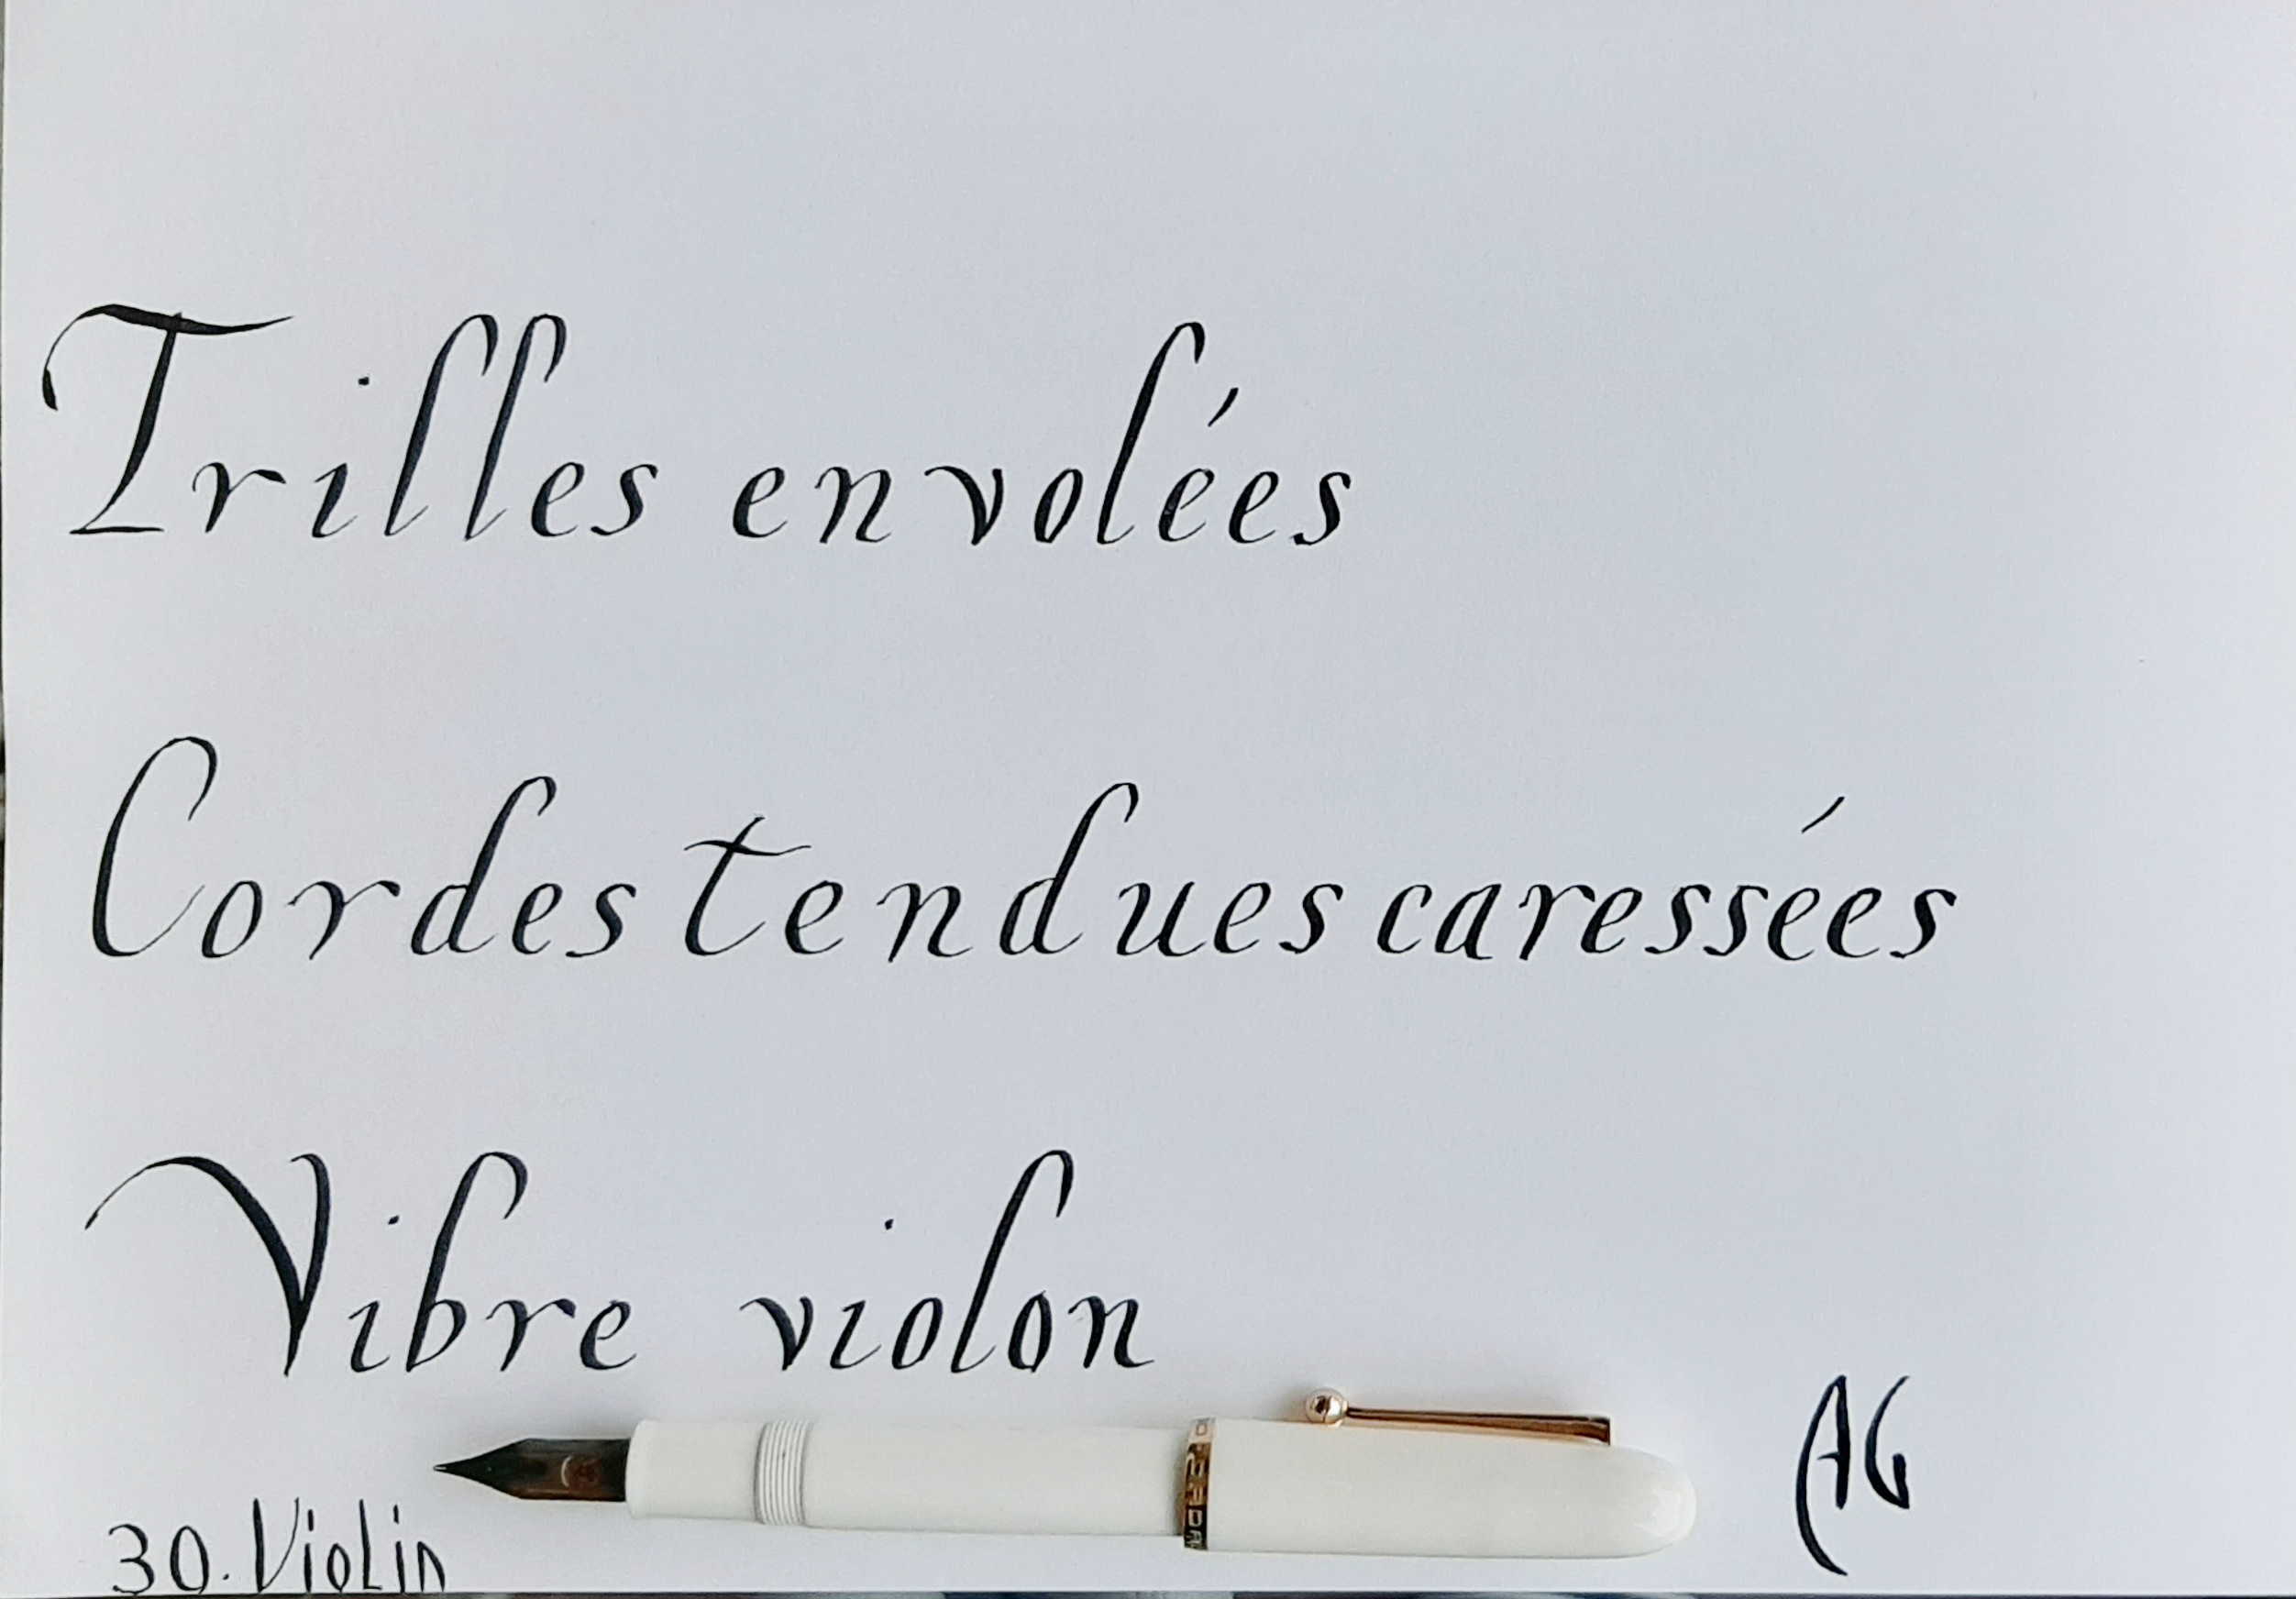 Trilles envolées
Cordes tendues caressées
Vibre violon
AG
30. Violin